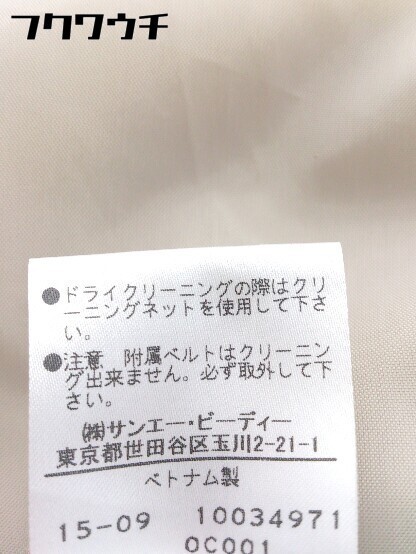 フクワウチ
●ドライクリーニングの際はクリ
ーニングネットを使用して下さ
い。
●注意 附属ベルトはクリーニン
グ出来ません。必ず取外して下
さい。
㈱サンエー・ビーディー
東京都世田谷区玉川2-21-1
ベトナム製
15-09 10034971
0C001